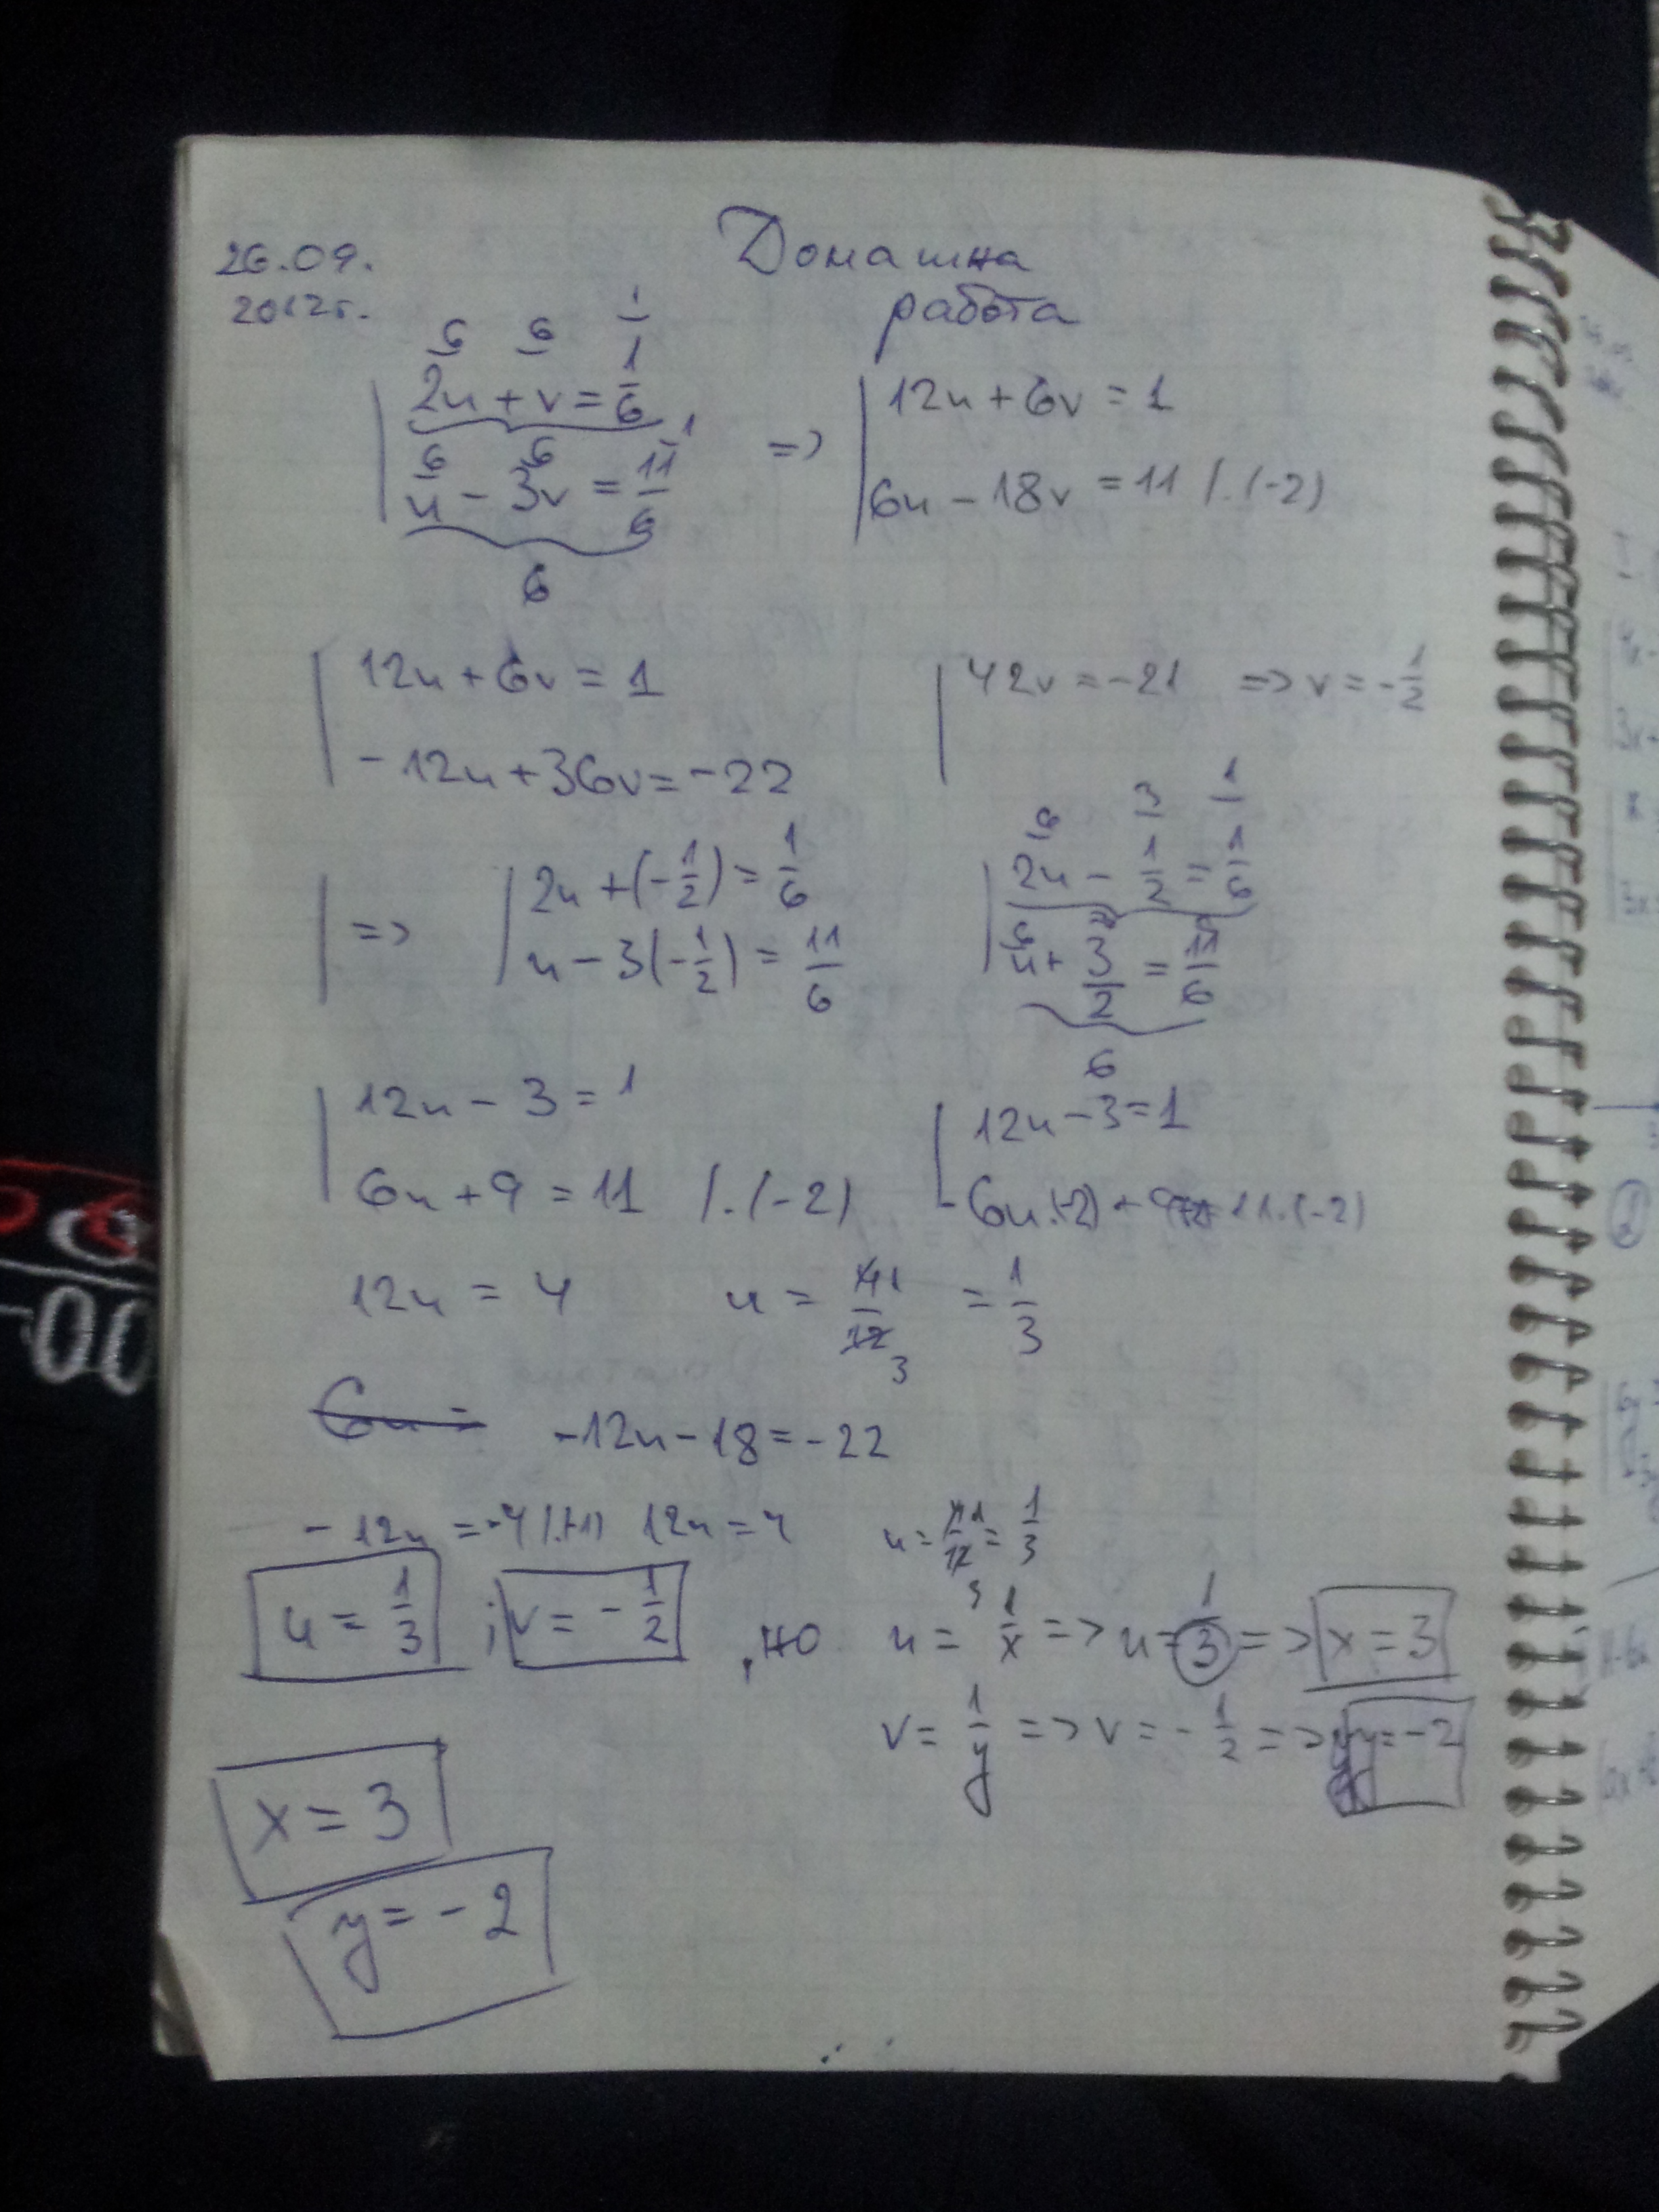 26.09.
2012г.
Домашна
работа
2u + v = 1/6
u - 3v = 11/6
6
=>
12u + 6v = 1
6u - 18v = 11 /.(-2)
12u + 6v = 1
- 12u + 36v = -22
42v = -21 => v = -1/2
=>
2u + (-1/2) = 1/6
u - 3(-1/2) = 11/6
2u - 1/2 = 1/6
u + 3/2 = 11/6
6
12u - 3 = 1
6u + 9 = 11 /.(-2)
12u - 3 = 1
12u = 4 u = 4/12 = 1/3
-12u - 18 = -22
- 12u = -4 /.(-1) 12u = 4 u = 4/12 = 1/3
u = 1/3 ; v = -1/2 , но u = 1/x => u = 1/3 => x = 3
v = 1/y => v = -1/2 => y = -2
x = 3
y = -2